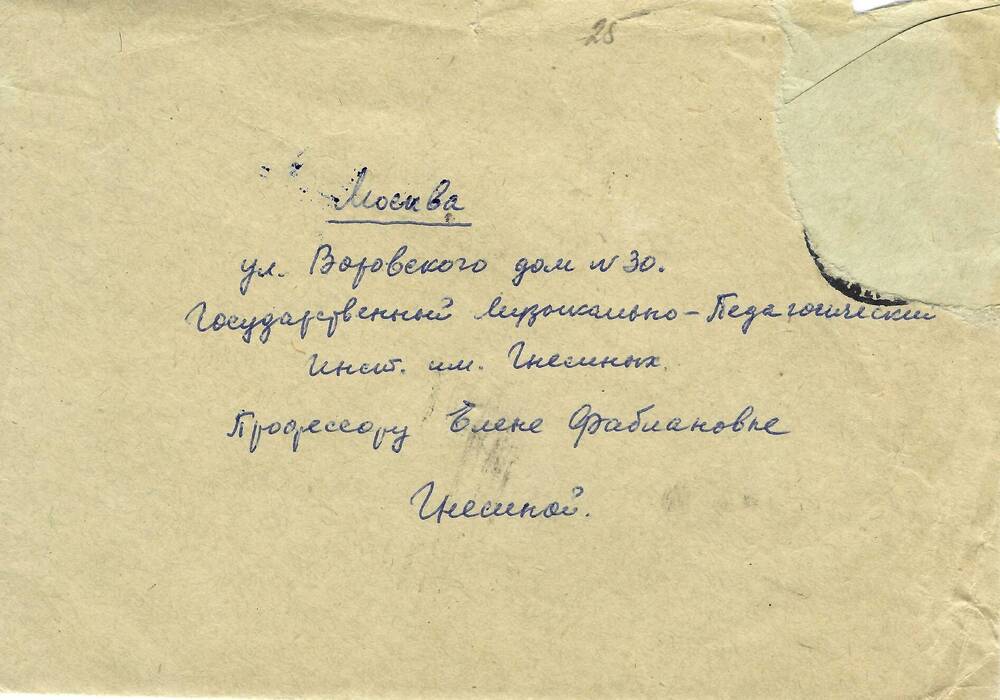 25
Москва
ул. Воровского дом N 30.
Государственный Музыкально-Педагогический
Инст. им. Гнесиных
Профессору Елене Фабиановне
Гнесиной.